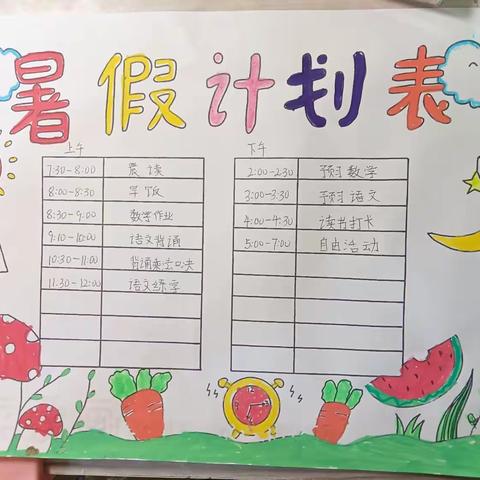 暑假计划表
上午
7:30-8:00 晨读
8:00-8:30 早饭
8:30-9:00 数学作业
9:10-10:00 语文背诵
10:30-11:00 背诵乘法口决
11:30-12:00 语文练字
下午
2:00-2:30 预习数学
3:00-3:30 预习语文
4:00-4:30 读书打卡
5:00-7:00 自由活动